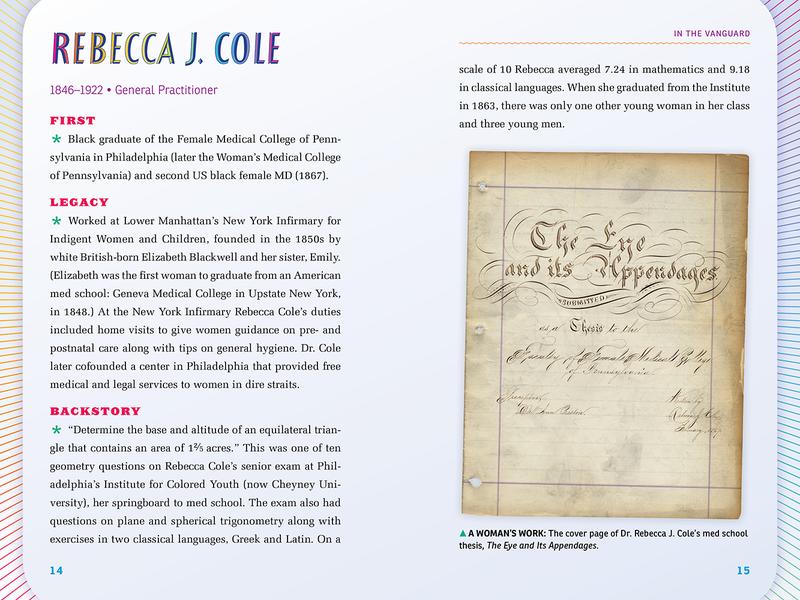 REBECCA J. COLE
1846–1922 • General Practitioner
FIRST
* Black graduate of the Female Medical College of Penn-
sylvania in Philadelphia (later the Woman's Medical College
of Pennsylvania) and second US black female MD (1867).
LEGACY
* Worked at Lower Manhattan's New York Infirmary for
Indigent Women and Children, founded in the 1850s by
white British-born Elizabeth Blackwell and her sister, Emily.
(Elizabeth was the first woman to graduate from an American
med school: Geneva Medical College in Upstate New York,
in 1848.) At the New York Infirmary Rebecca Cole's duties
included home visits to give women guidance on pre- and
postnatal care along with tips on general hygiene. Dr. Cole
later cofounded a center in Philadelphia that provided free
medical and legal services to women in dire straits.
BACKSTORY
* "Determine the base and altitude of an equilateral trian-
gle that contains an area of 1⅖ acres." This was one of ten
geometry questions on Rebecca Cole's senior exam at Phil-
adelphia's Institute for Colored Youth (now Cheyney Uni-
versity), her springboard to med school. The exam also had
questions on plane and spherical trigonometry along with
exercises in two classical languages, Greek and Latin. On a
14
IN THE VANGUARD
scale of 10 Rebecca averaged 7.24 in mathematics and 9.18
in classical languages. When she graduated from the Institute
in 1863, there was only one other young woman in her class
and three young men.
The Eye
and its Appendages
SUBMITTED
as a Thesis to the
Faculty of Female Medical College
of Pennsylvania
▲ A WOMAN'S WORK: The cover page of Dr. Rebecca J. Cole's med school
thesis, The Eye and Its Appendages.
15